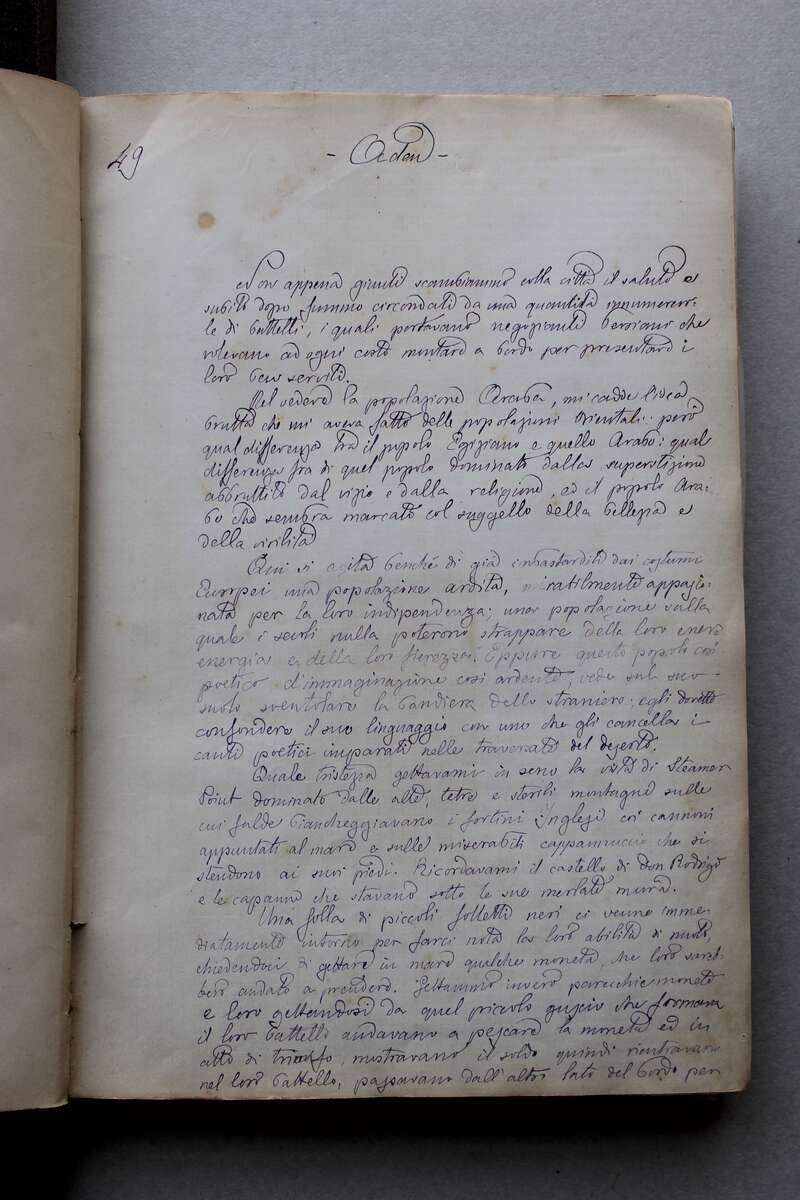 49
- Aden -
Non appena giunti scambiammo colla città il saluto e
subito dopo fummo circondati da una quantità innumerevo-
le di battelli, i quali portavano negozianti che
volevano ad ogni costo montare a bordo per presentarci i
loro ben serviti.
Nel vedere la popolazione Araba, mi cadde l'idea
brutta che mi aveva fatto delle popolazioni Orientali: però
qual differenza tra il popolo Egiziano e quello Arabo: quale
differenza fra di quel popolo dominato dalla superstizione
abbruttito dal vizio e dalla religione, ed il popolo Ara-
bo che sembra marcato col suggello della bellezza e
della virilità
Qui si agita benché di già imbastardita dai costumi
Europei una popolazione ardita, appasio-
nata per la loro indipendenza; una popolazione sulla
quale i secoli nulla poterono strappare della loro
energia e della loro fierezza. Eppure questo popolo così
poetico d'immaginazione così ardente, vede sul suo
suolo sventolare la bandiera dello straniero; egli dovette
confondere il suo linguaggio con uno che gli cancella i
canti poetici imparati nelle traversate del deserto.
Quale tristezza gettavami in seno la vista di Steamer
Point dominato dalle alte, tetre e sterili montagne sulle
cui falde biancheggiavano i fortini Inglesi coi cannoni
appuntati al mare e sulle miserabili cappannuccie che si
stendono ai suoi piedi. Ricordavami il castello di Don Rodrigo
e le capanne che stavano sotto le sue merlate mura.
Una folla di piccoli folletti neri ci venne imme-
diatamente intorno per farci nota la loro abilità di nuoto,
chiedendoci di gettare in mare qualche moneta, che loro sareb-
bero andati a prendere. Gettammo invero parecchie monete
e loro gettandosi da quel piccolo guscio che formava
il loro battello andavano a pescare la moneta ed in
atto di trionfo, mostravano il soldo quindi rientravano
nel loro battello, passavano dall'altro lato del bordo per